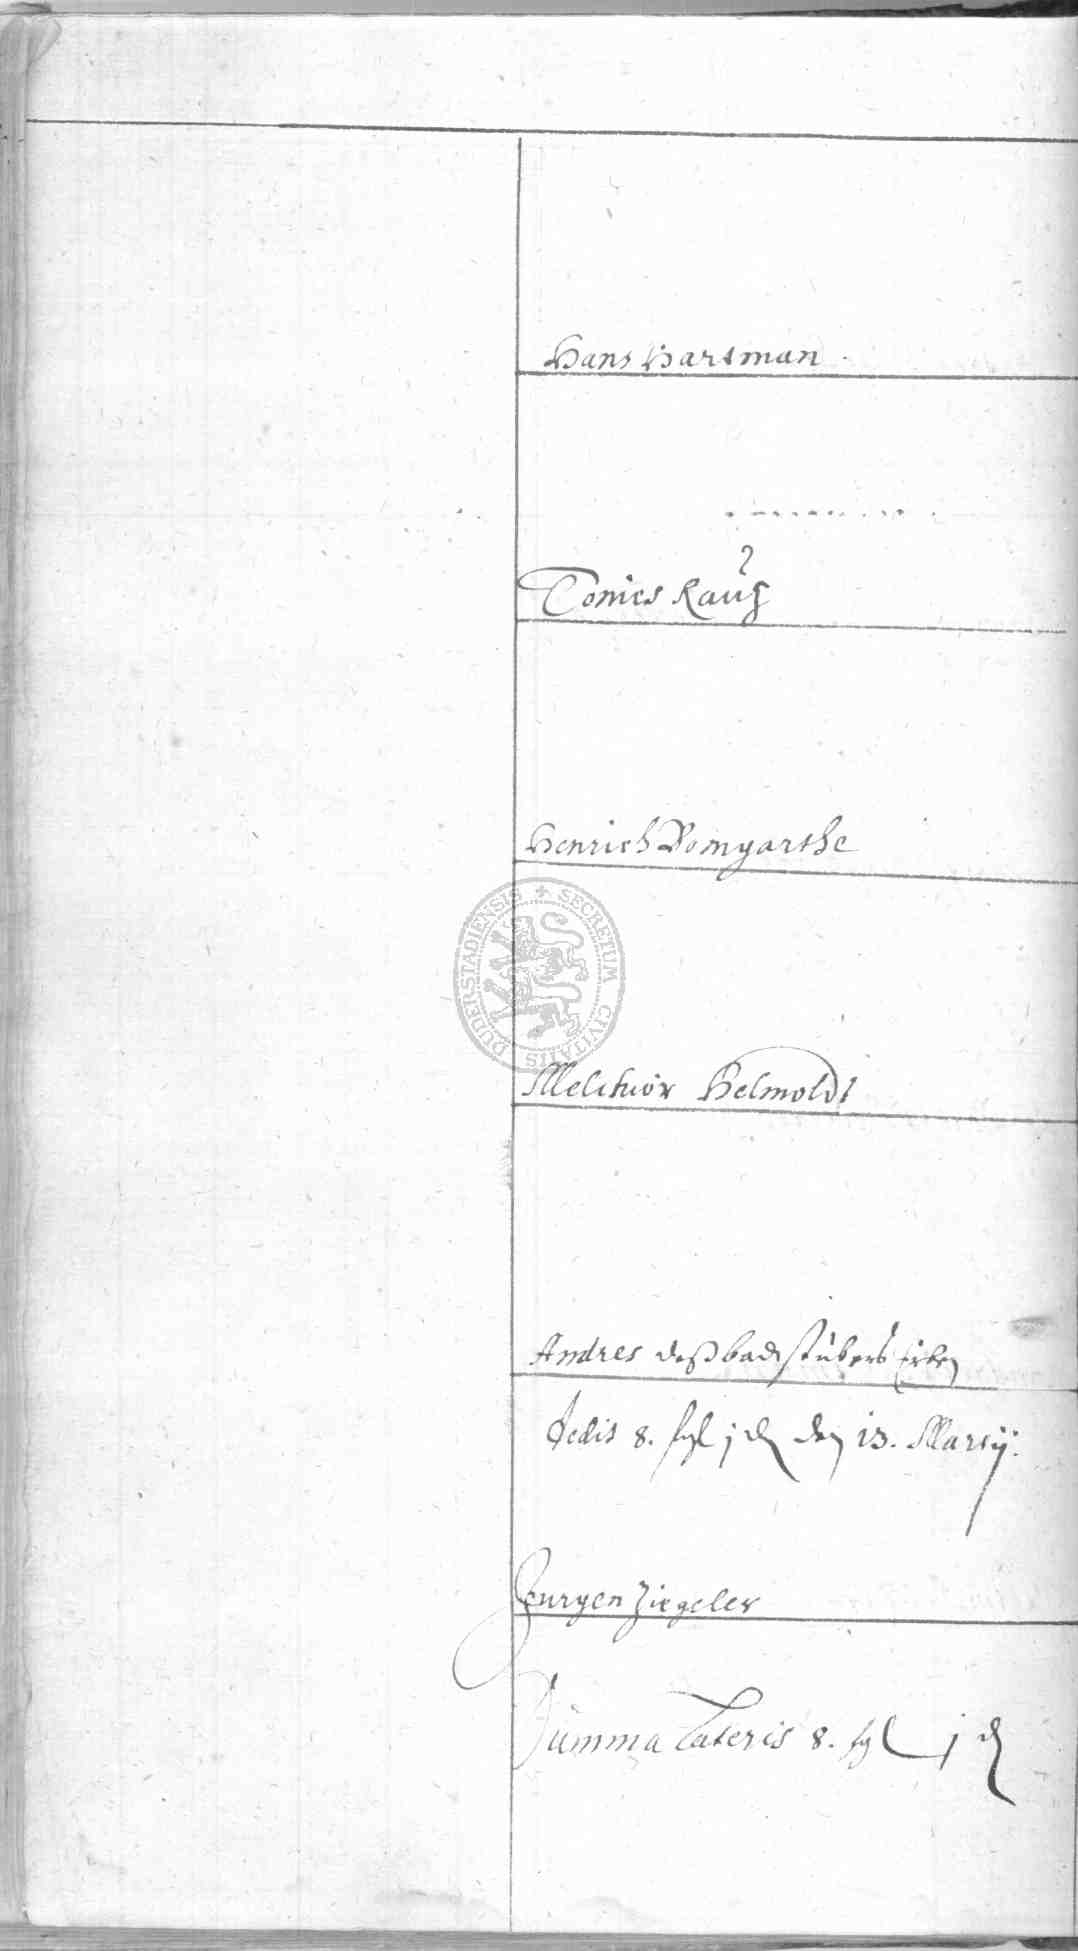 Hans Hartman
Tonies Rauſ
Henrich Bomgarthe
SECRETUM CIVITATIS DUDERSTADIENSIS
Melchior Helmoldt
Andres deß badstubers Erben
dedit 8. ßl j d den 13. Martij.
Jurgen Ziegeler
Summa Lateris 8. ßl j d